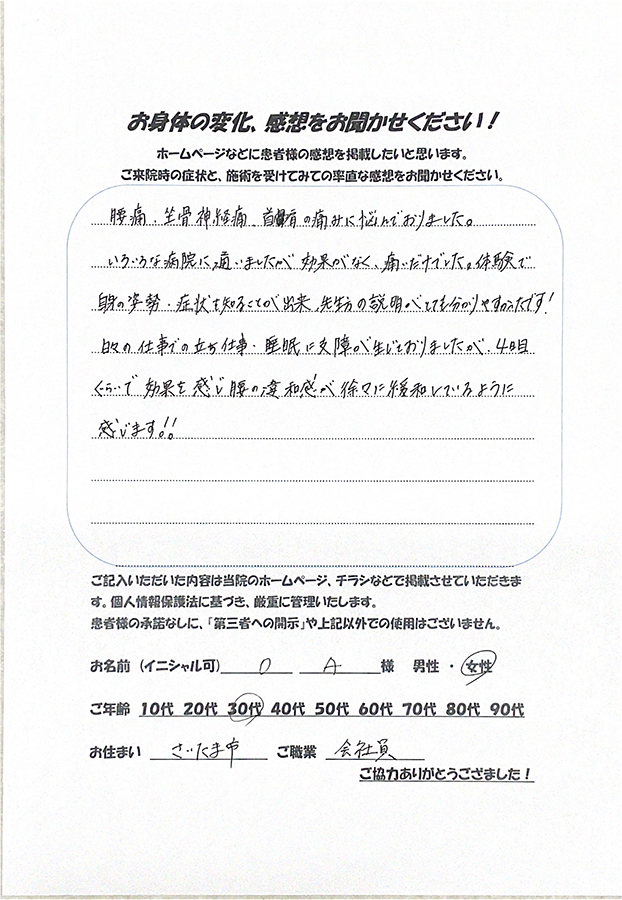 お身体の変化、感想をお聞かせください!
ホームページなどに患者様の感想を掲載したいと思います。
ご来院時の症状と、施術を受けてみての率直な感想をお聞かせください。
腰痛、坐骨神経痛、首肩の痛みに悩んでおりました。
いろいろな病院に通いましたが効果がなく、痛いだけでした。体験で
自身の姿勢・症状を知ることが出来、先生方の説明がとても分かりやすかったです!
日々の仕事での立ち仕事・睡眠に支障が生じておりましたが、4日目
くらいで効果を感じ腰の違和感が徐々に緩和しているように
感じます!!
ご記入いただいた内容は当院のホームページ、チラシなどで掲載させていただきま
す。個人情報保護法に基づき、厳重に管理いたします。
患者様の承諾なしに、「第三者への開示」や上記以外での使用はございません。
お名前(イニシャル可) O A 様 男性・女性
ご年齢 10代 20代 30代 40代 50代 60代 70代 80代 90代
お住まい さいたま市 ご職業 会社員
ご協力ありがとうござました!